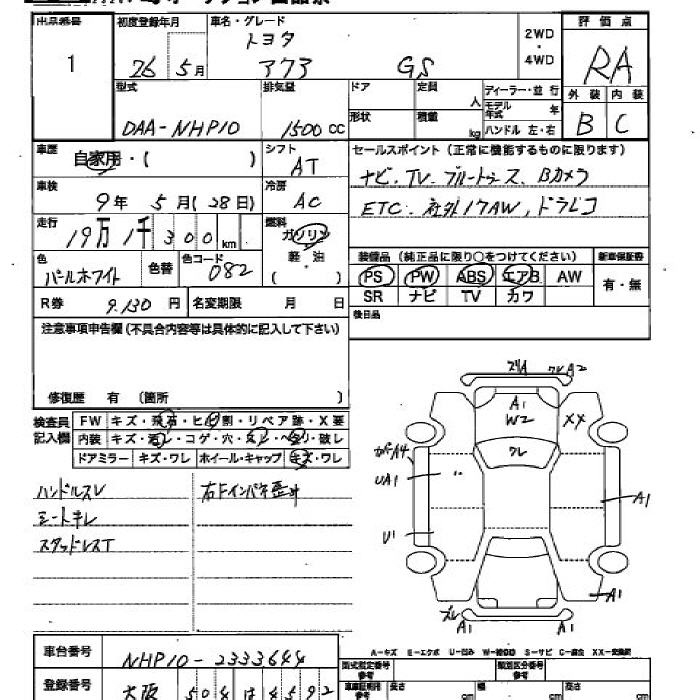 出品番号 1
初度登録年月 26 5月
車名・グレード トヨタ アクア GS
2WD・4WD
評価点 RA
外装 B 内装 C
型式 DAA-NHP10
排気量 1500 CC
ドア
定員 人
形状
積載 kg
ディーラー・並行
モデル年式 年
ハンドル 左・右
車歴 自家用・( )
シフト AT
セールスポイント(正常に機能するものに限ります)
ナビ.TV.ブルートゥース.Bカメラ
車検 9年 5月(28日)
冷房 AC
ETC.社外17AW,ドラレコ
走行 19万1千300km
燃料 ガソリン 軽・油 ( )
色 パールホワイト 色替
色コード 082
装備品(純正品に限り○をつけてください)
新車保証書 有・無
PS PW ABS エアB AW
SR ナビ TV カワ
R券 9.130円
名変期限 月 日
後日品
注意事項申告欄(不具合内容等は具体的に記入して下さい)
修復歴 有 (箇所 )
検査員記入欄
FW キズ・飛石・ヒビ割・リペア跡・X要
内装 キズ・・コゲ・穴・・・破レ
ドアミラー キズ・ワレ ホイール・キャップ キズ・ワレ
ハンドルスレ
シートキレ
スタッドレスT
右Fインパネ歪ミ
A2
A1
W2
XX
ワレ
A4
UA1
U1
A1
A1
A1
A1
A-キズ E-エクボ U-凹み W-補修跡 S-サビ C-腐食 XX-交換済
車台番号 NHP10-2333644
登録番号 大阪 504 は 4592
型式指定番号
類別区分番号
長さ cm
幅 cm
高さ cm